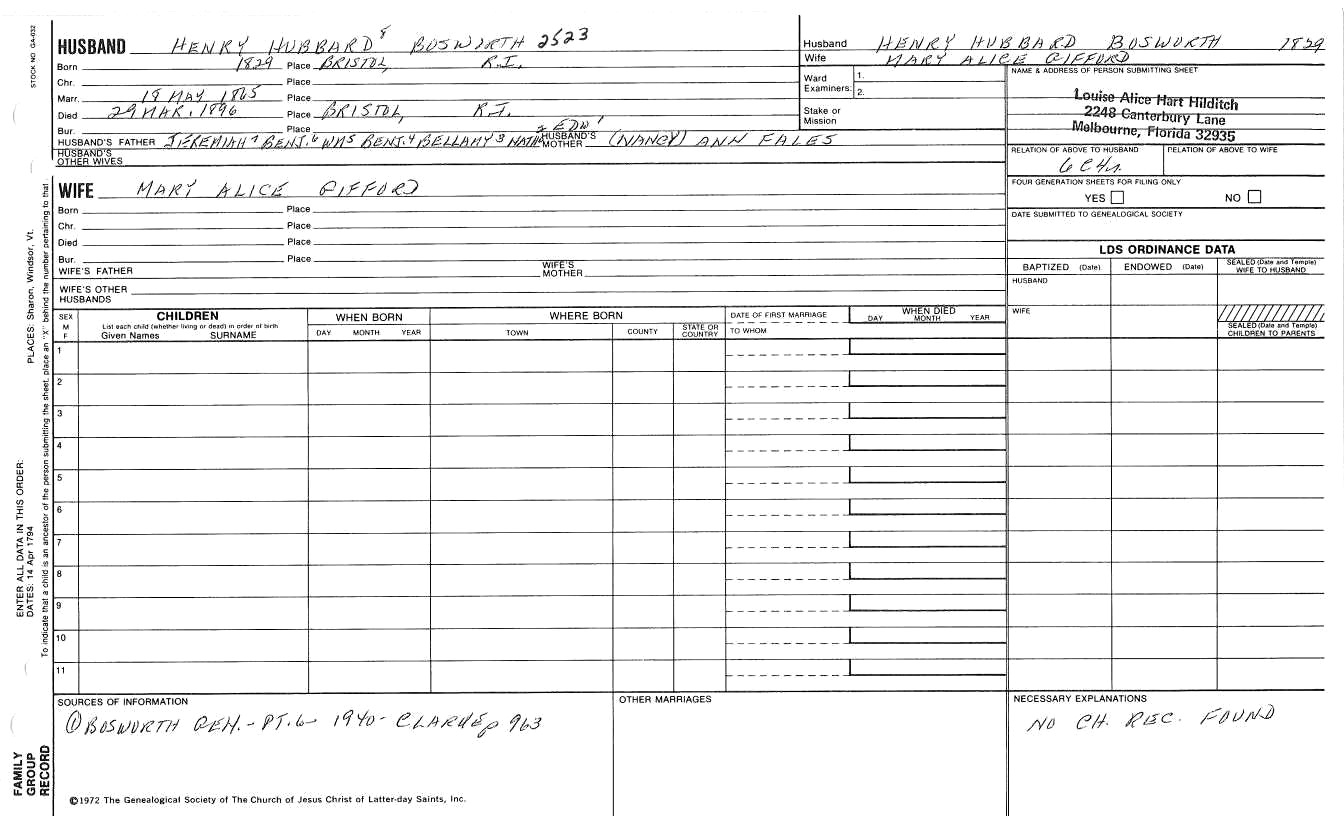 STOCK NO GA-032
HUSBAND HENRY HUBBARD 8 BOSWORTH 2523
Born 1829 Place BRISTOL, R.I.
Chr. Place
Marr. 18 MAY 1865 Place
Died 29 MAR. 1896 Place BRISTOL, R.I.
Bur. Place
HUSBAND'S FATHER JEREMIAH 7 BENJ. 6 WM 5 BENJ. 4 BELLAMY 3 NATH 2 EDW 1 HUSBAND'S MOTHER (NANCY) ANN FALES
HUSBAND'S OTHER WIVES
WIFE MARY ALICE GIFFORD
Born Place
Chr. Place
Died Place
Bur. Place
WIFE'S FATHER WIFE'S MOTHER
WIFE'S OTHER HUSBANDS
Husband HENRY HUBBARD BOSWORTH 1829
Wife MARY ALICE GIFFORD
Ward Examiners: 1.
2.
Stake or Mission
NAME & ADDRESS OF PERSON SUBMITTING SHEET
Louise Alice Hart Hilditch
2248 Canterbury Lane
Melbourne, Florida 32935
RELATION OF ABOVE TO HUSBAND RELATION OF ABOVE TO WIFE
6 C 4r.
FOUR GENERATION SHEETS FOR FILING ONLY
YES NO
DATE SUBMITTED TO GENEALOGICAL SOCIETY
LDS ORDINANCE DATA
BAPTIZED (Date) ENDOWED (Date) SEALED (Date and Temple) WIFE TO HUSBAND
HUSBAND
WIFE
SEALED (Date and Temple) CHILDREN TO PARENTS
SEX M F CHILDREN WHEN BORN WHERE BORN DATE OF FIRST MARRIAGE WHEN DIED
List each child (whether living or dead) in order of birth
Given Names SURNAME DAY MONTH YEAR TOWN COUNTY STATE OR COUNTRY TO WHOM DAY MONTH YEAR
1
2
3
4
5
6
7
8
9
10
11
SOURCES OF INFORMATION
① BOSWORTH GEN. - PT. 6 - 1940 - CLARKE p 963
OTHER MARRIAGES
NECESSARY EXPLANATIONS
NO CH. REC. FOUND
©1972 The Genealogical Society of The Church of Jesus Christ of Latter-day Saints, Inc.
FAMILY GROUP RECORD
ENTER ALL DATA IN THIS ORDER:
DATES: 14 Apr 1794
PLACES: Sharon, Windsor, Vt.
To indicate that a child is an ancestor of the person submitting the sheet, place an "X" behind the number pertaining to that